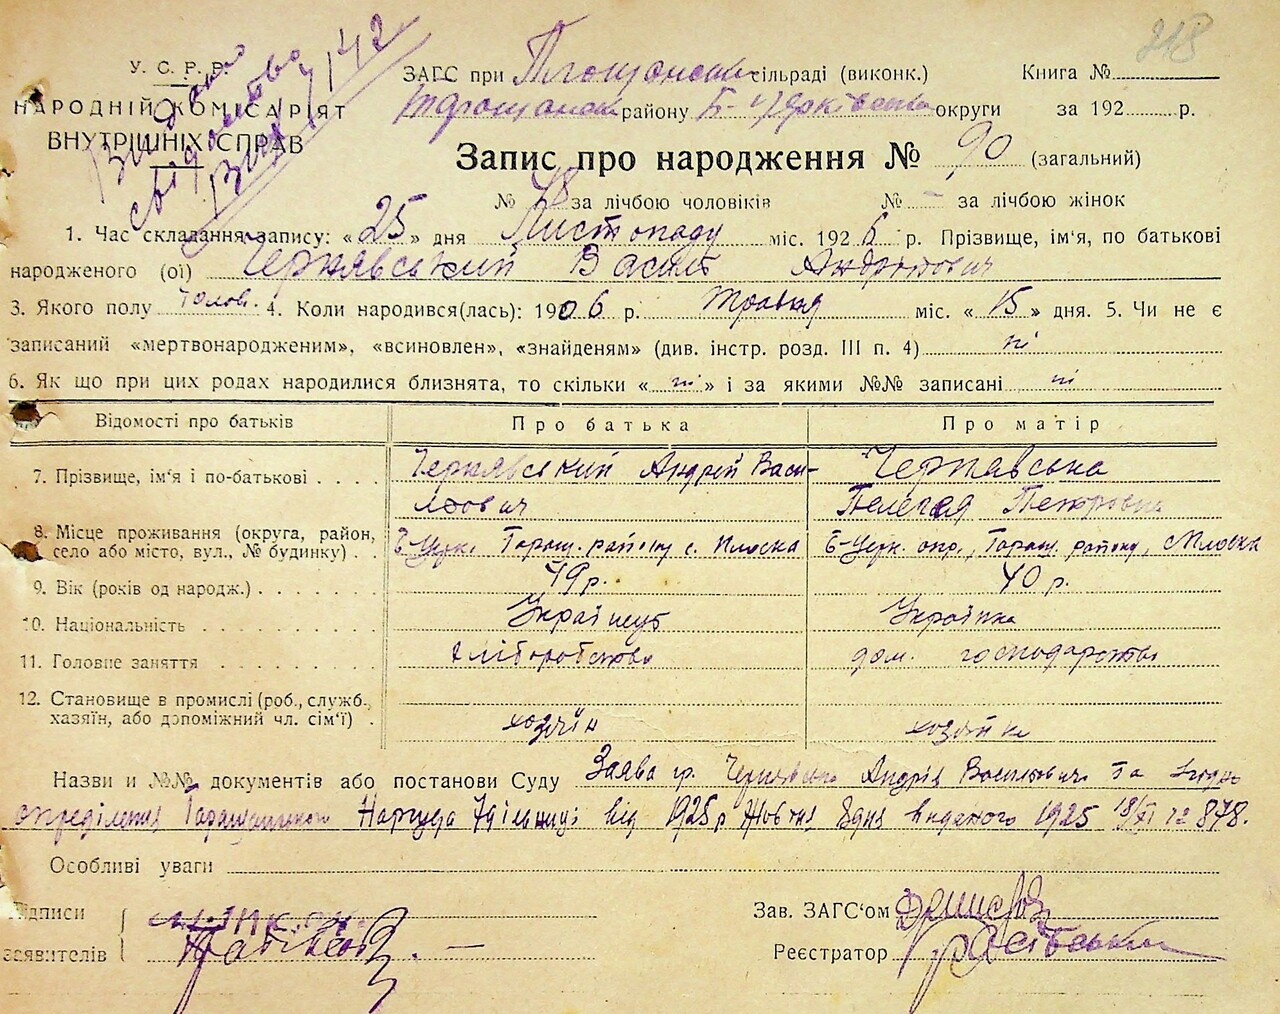 218
У. С. Р. Р.
НАРОДНІЙ КОМІСАРІЯТ
ВНУТРІШНІХ СПРАВ
Видано
свідоцтво
142
ЗАГС при Площанськ сільраді (виконк.) Книга №
Таращанськ району Б-Церківська округи за 192 р.
Запис про народження № 90 (загальний)
№ 48 за лічбою чоловіків № – за лічбою жінок
1. Час складання запису: «25» дня Листопаду міс. 1926 р. Прізвище, ім'я, по батькові
народженого (ої) Чернявський Василь Андрійович
3. Якого полу чолов. 4. Коли народився(лась): 1906 р. травня міс. «15» дня. 5. Чи не є
записаний «мертвонародженим», «всиновлен», «знайденям» (див. інстр. розд. III п. 4) ні
6. Як що при цих родах народилися близнята, то скільки «ні» і за якими №№ записані ні
Відомості про батьків Про батька Про матір
7. Прізвище, ім'я і по-батькові Чернявський Андрій Васи- Чернявська
льович Пелегея Петровна
8. Місце проживання (округа, район,
село або місто, вул., № будинку) Б-Церк. Таращ. району с. Плоска Б-Церк. окр., Таращ. району, с Плоска
9. Вік (років од народж.) 49 р. 40 р.
10. Національність Українець Українка
11. Головне заняття хліборобство дом. господарство
12. Становище в промислі (роб., служб.,
хазяїн, або допоміжний чл. сім'ї) хозяїн хозяйка
Назви и №№ документів або постанови Суду Заява гр. Чернявського Андрія Васильовича та згідно
определения Таращанского Нарсуда дільниці від 1925 р Жовтня 8 дня виданого 1925 18/XI 12878.
Особливі уваги
Підписи
заявителів
Зав. ЗАГС'ом
Реєстратор